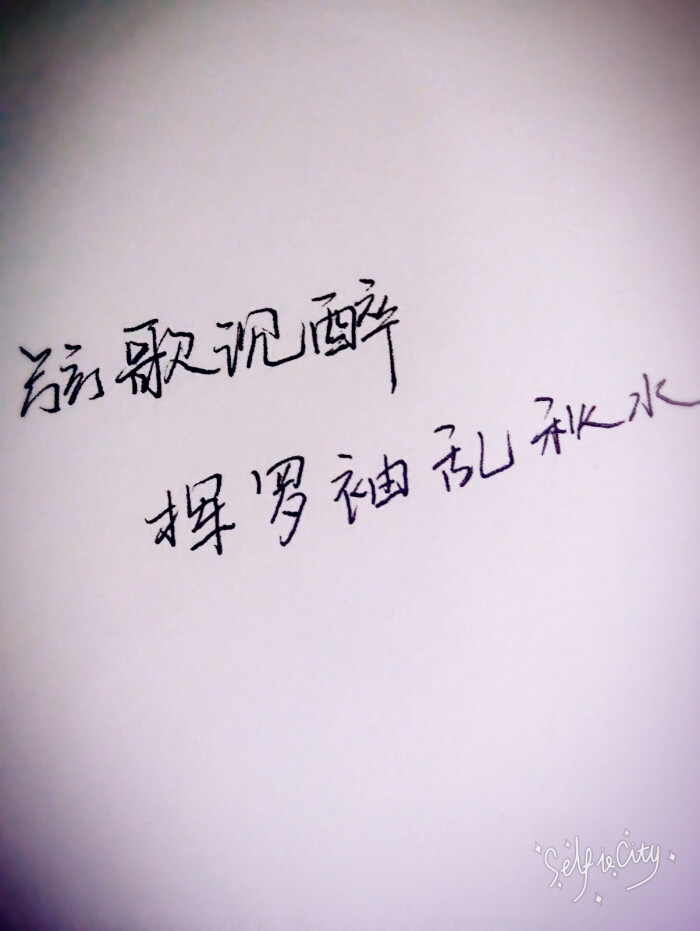 弦歌沉醉
挥罗袖乱秋水
SelfieCity